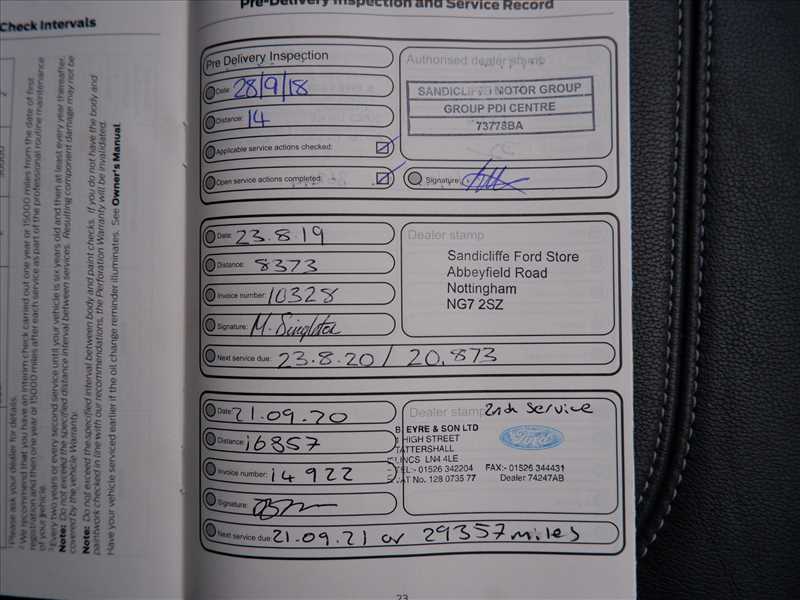 Check Intervals
1 Please ask your dealer for details.
2 We recommend that you have an interim check carried out one year or 15000 miles from the date of first
registration and then one year or 15000 miles after each service as part of the professional routine maintenance
of your vehicle.
3 Every two years or every second service until your vehicle is six years old and then at least every year thereafter.
Note: Do not exceed the specified distance interval between services. Resulting component damage may not be
covered by the vehicle Warranty.
Note: Do not exceed the specified interval between body and paint checks. If you do not have the body and
paintwork checked in line with our recommendations, the Perforation Warranty will be invalidated.
Have your vehicle serviced earlier if the oil change reminder illuminates. See Owner's Manual.
Pre-Delivery Inspection and Service Record
Pre Delivery Inspection
Date: 28/9/18
Distance: 14
Applicable service actions checked:
Open service actions completed:
Authorised dealer stamp
SANDICLIFFE MOTOR GROUP
GROUP PDI CENTRE
73778BA
Signature:
Date: 23.8.19
Distance: 8373
Invoice number: 10328
Signature: M. Singleton
Next service due: 23.8.20 / 20,873
Dealer stamp
Sandicliffe Ford Store
Abbeyfield Road
Nottingham
NG7 2SZ
Date: 21.09.20
Distance: 16857
Invoice number: 14922
Signature:
Next service due: 21.09.21 or 29357 miles
Dealer stamp 2nd Service
B. EYRE & SON LTD
HIGH STREET
TATTERSHALL
LINCS LN4 4LE
TEL:- 01526 342204 FAX:- 01526 344431
VAT No. 128 0735 77 Dealer 74247AB
Ford
23